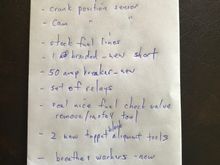 - crank position sensor
- Cam " "
- stock fuel lines
- 1 braided - new short
- 50 amp breaker - new
- set of relays
- real nice fuel check valve
remove/install tool
- 2 new tappet alignment tools
- breather workers - new